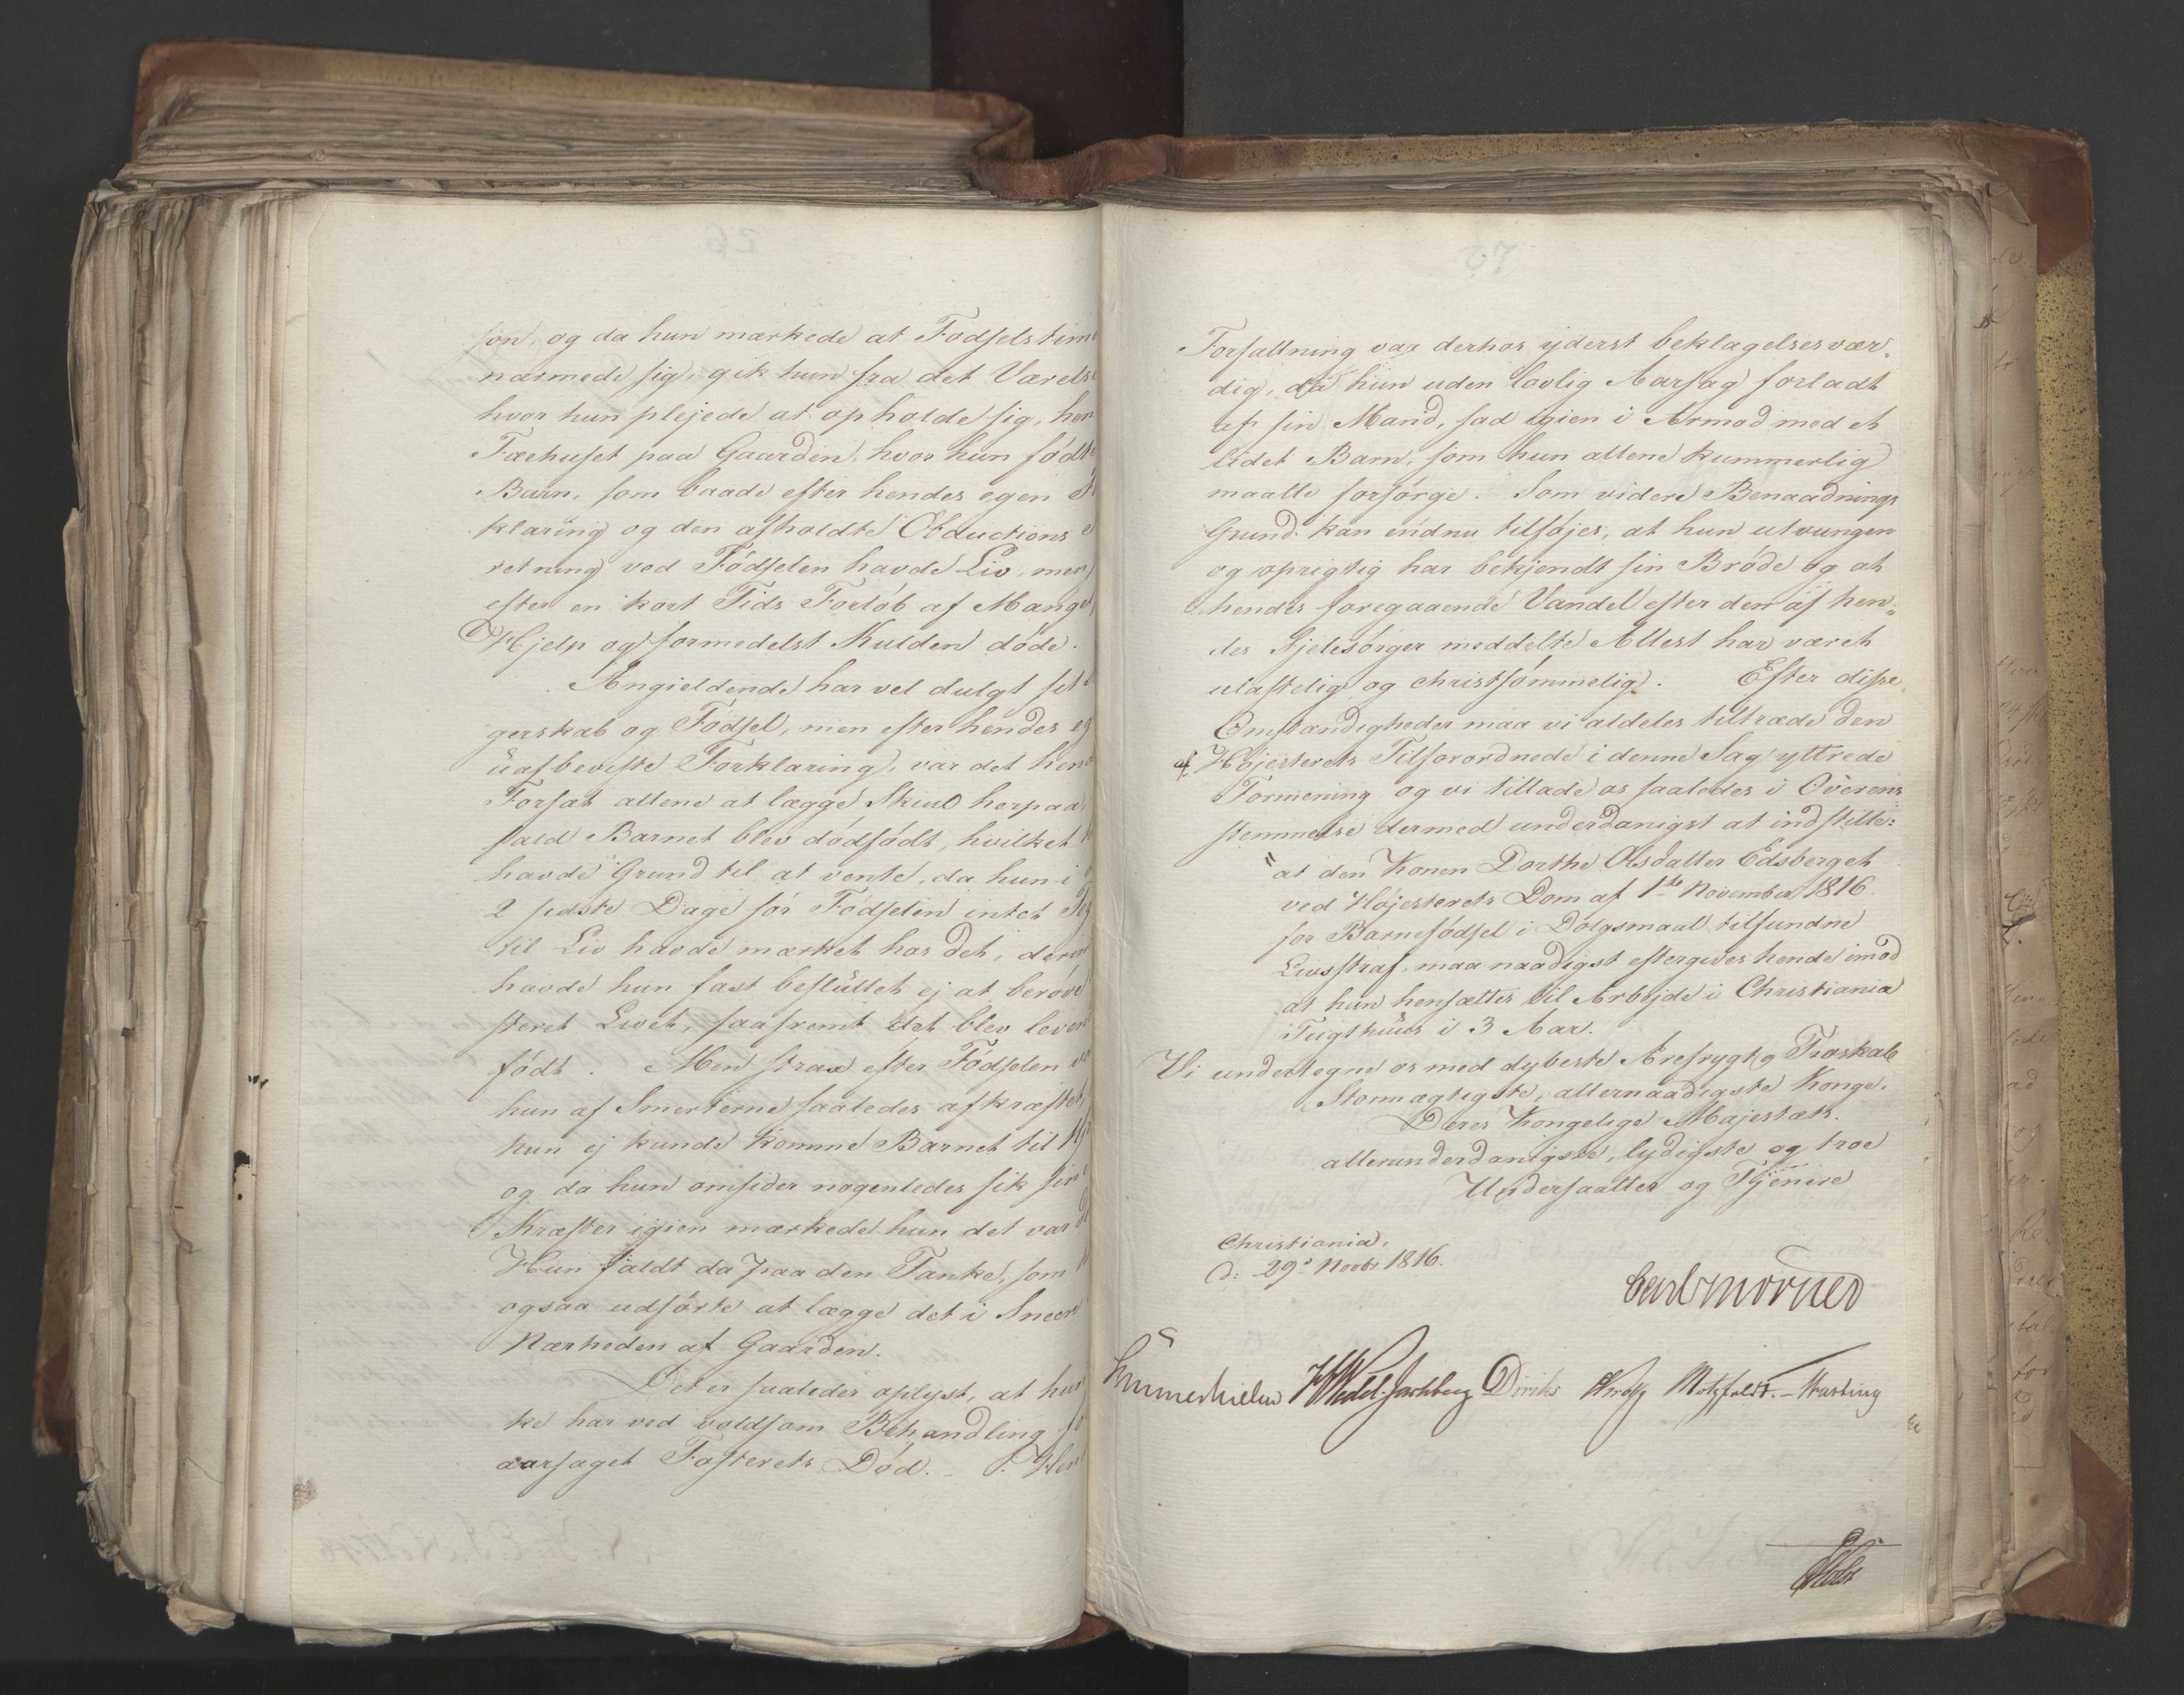 søn, og da hun mærkede at Fødselstim
nærmede sig, gik hun fra det Værels
hvor hun plejede at opholde sig, hen
Fæehuset paa Gaarden, hvor hun fødte
Barn, som baade efter hendes egen
klaring og den afholdte Obductions
retning ved Fødselen havde Liv, men
efter en kort Tids Forløb af Mangel
Hjelp og formedelst Kulden døde.
Angieldende har vel dulgt sit
gerskab og Fødsel, men efter hendes eg
uafbeviste Forklaring, var det hend
Forsæt allene at lægge Skiul herpaa
fald Barnet blev dødfødt, hvilket
havde Grund til at vente, da hun i
2 sidste Dage før Fødselen intet Teg
til Liv havde mærket hos det, derim
havde hun fast besluttet ej at berøve
steret Livet, saafremt det blev leven
født. Men strax efter Fødselen
hun af Smerterne saaledes afkræftet,
hun ej kunde komme Barnet til Hj
og da hun omsider nogenledes fik sine
Kræfter igien mærkede hun det var
Hun faldt da paa den Tanke, som
ogsaa udførte at lægge det i Sneen
Nærheden af Gaarden.
Det er saaledes oplyst, at hun
ke har ved voldsom Behandling fo
aarsaget Fosterets Død. Hen
Forfattning var derhos yderst beklagelsesvær-
dig, da hun uden lovlig Aarsag forladt
af sin Mand, sad igien i Armod med et
lidet Barn, som hun allene kummerlig
maatte forsørge. Som videre Benaadnings
Grund kan endnu tilføjes, at hun utvungen
og oprigtig har bekjendt sin Brøde og at
hendes foregaaende Vandel efter den af hen-
des Sjelesørger meddelte Attest har været
ulastelig og christsømmelig. Efter disse
Omstændigheder maa vi aldeles tiltræde den
af Højesterets Tilforordnede i denne Sag yttrede
Formening og vi tillade os saaledes i Overens
stemmelse dermed underdanigst at indstille:
"at den Konen Dorthe Olsdatter Edsberget
ved Højesterets Dom af 1ste November 1816
for Barnefødsel i Dølgsmaal tilfundne
Livsstraf, maa naadigst eftergives hende imod
at hun hensættes til Arbejde i Christiania
Tugthuus i 3 Aar.
Vi undertegne os med dybeste Ærefrygt og Troskab
Stormægtigste, allernaadigste Konge.
Deres Kongelige Majestæts.
allerunderdanigste, lydigste og troe
Undersaatter og Tjenere
Christiania,
d: 29d Novbr 1816.
Carl Mörner
Sommerhielm HWedel-Jarlsberg Diriks Krohg Motzfeldt. Hasting
Holst